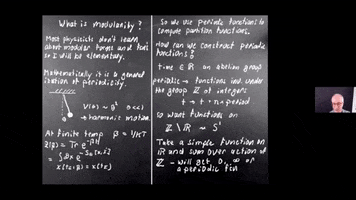 What is modularity?
Most physicists don't learn
about modular forms and
so I will be elementary.
Mathematically it is a general
ization of periodicity.
→ harmonic motion.
At finite temp β = 1/kT
Z(β) = Tr e^{-βH}
x(t+β) = x(t)
So we use periodic functions to
compute partition functions.
How can we construct periodic
functions?
time ∈ ℝ an abelian group
periodic → functions inv. under
the group ℤ of integers
t → t + n·period
so want functions on
ℤ\ℝ ~ S¹
Take a simple function on
ℝ and sum over action of
ℤ - will get 0, ∞ or
a periodic fcn